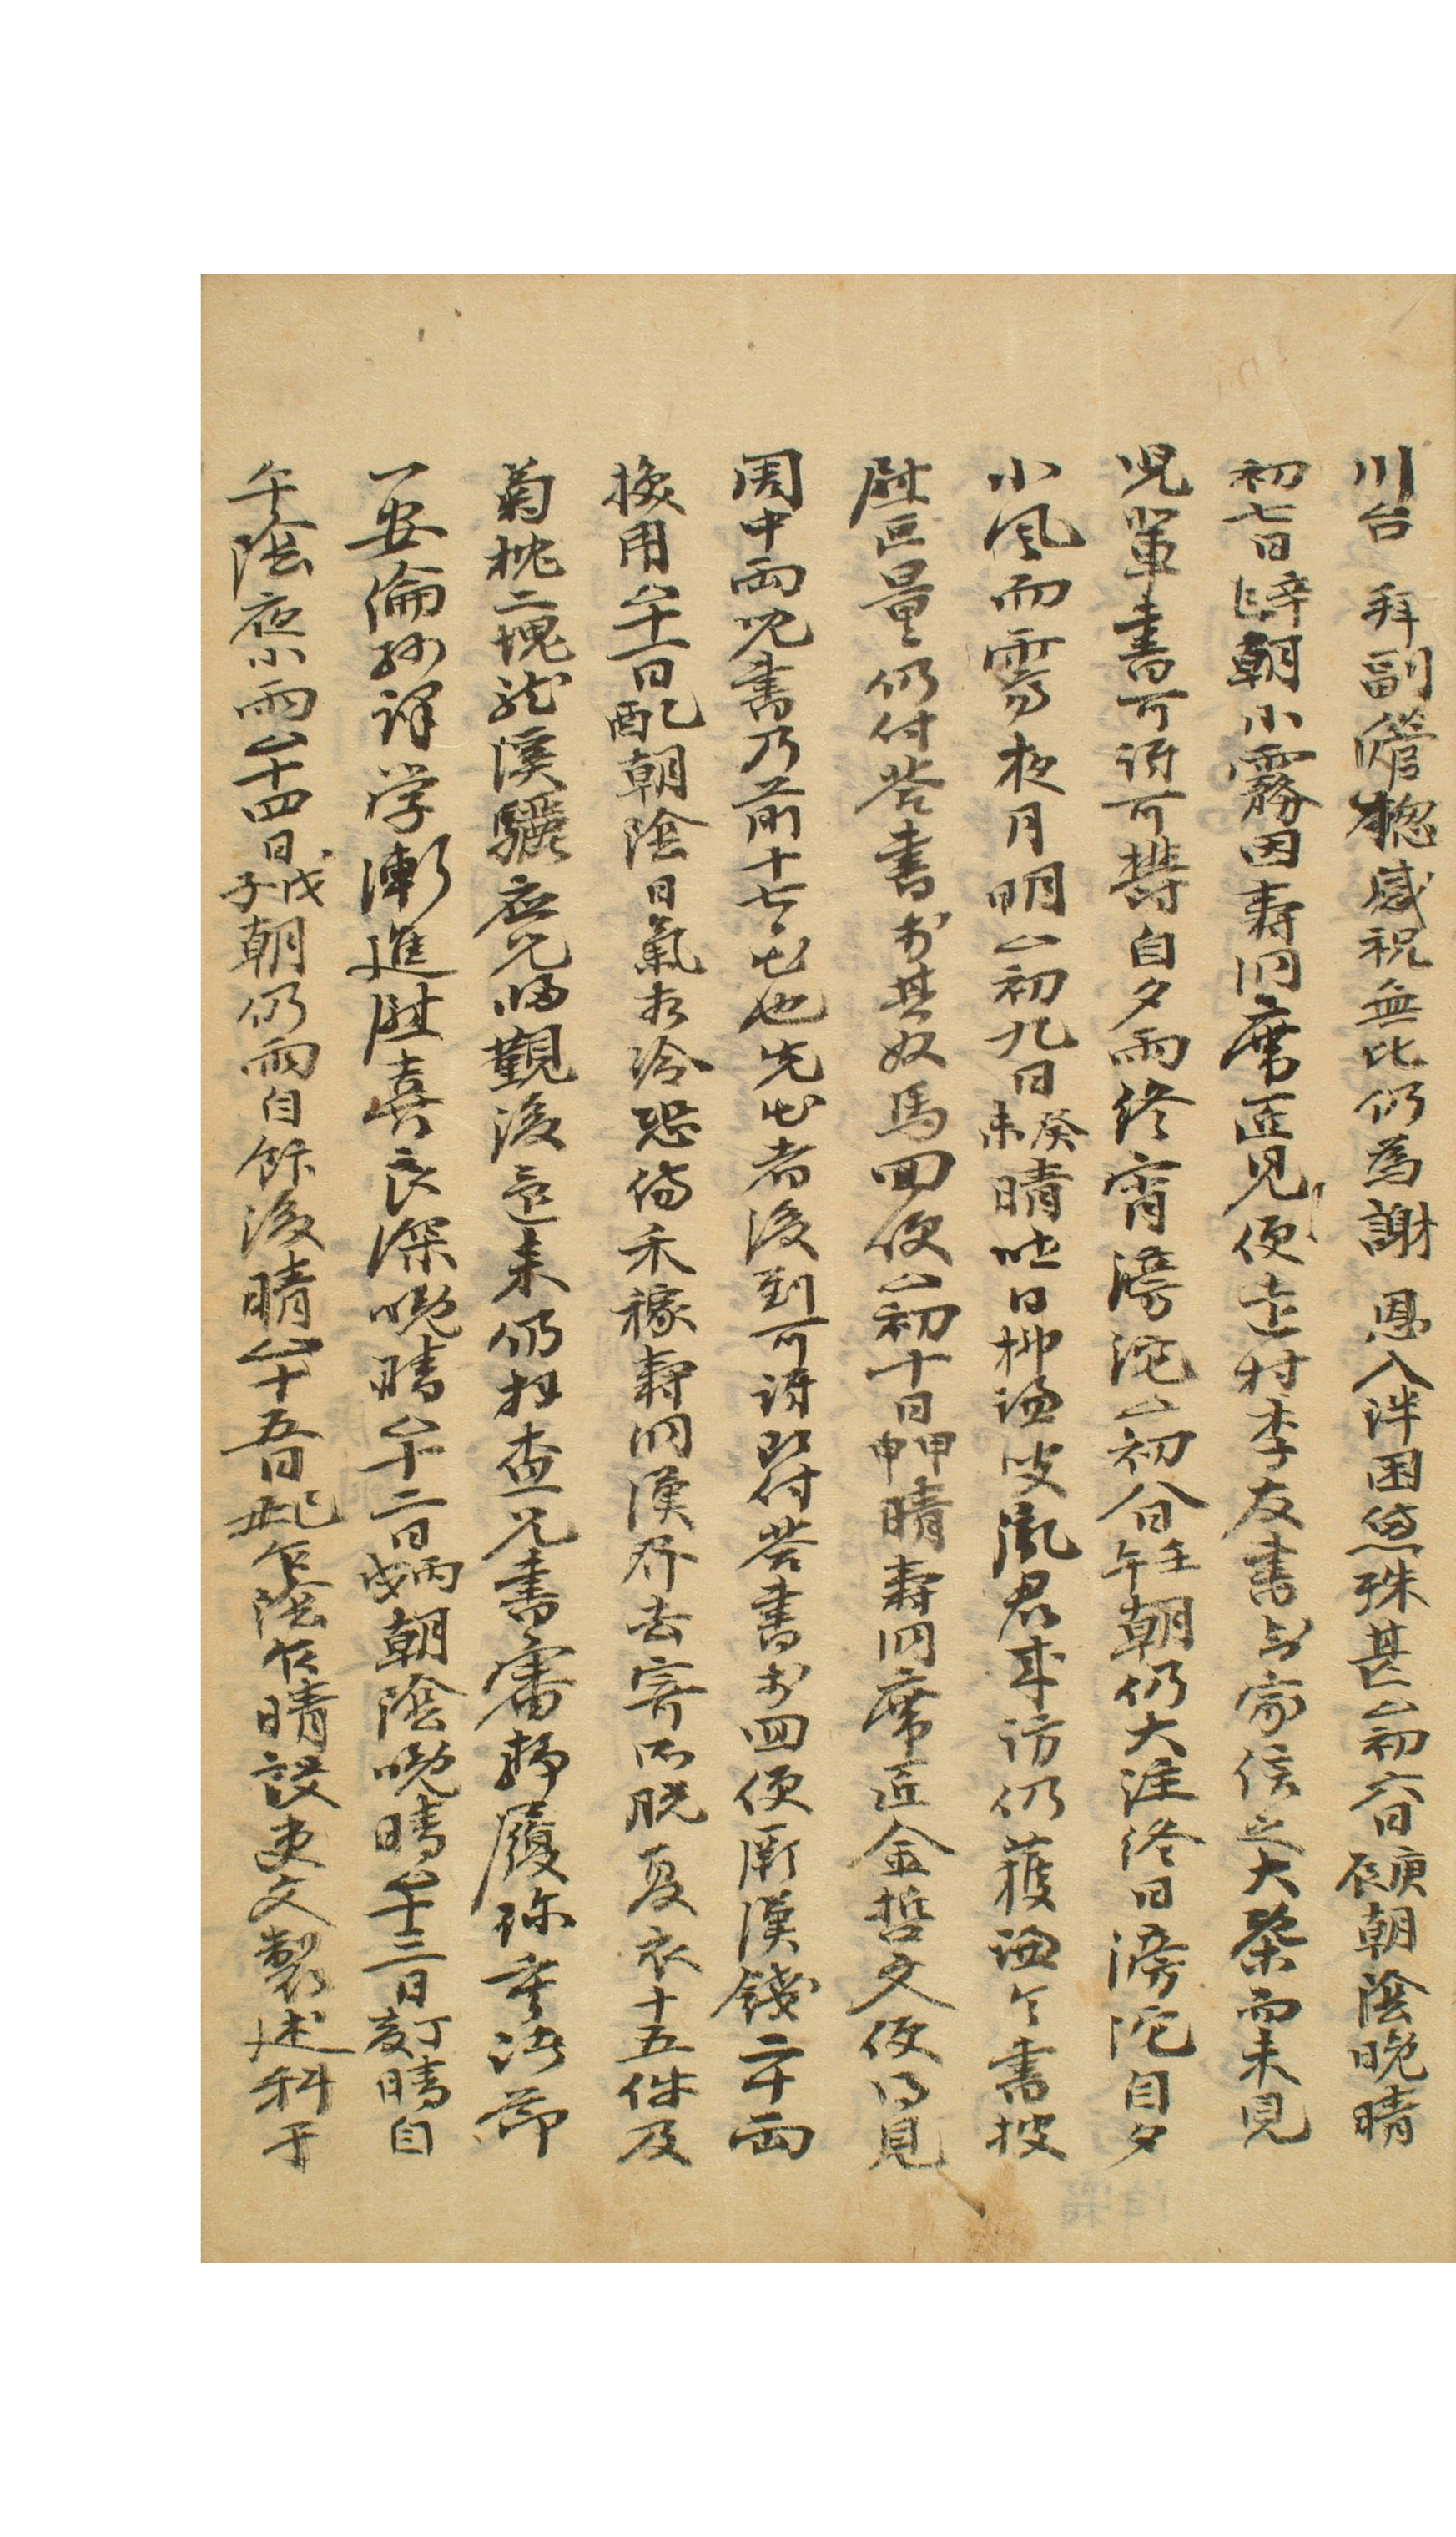 川台 拜副管摠感祝無比仍爲謝 恩入泮困憊殊甚△初六日庚辰朝陰晩晴
初七日辛巳朝小霧因壽洞席匠見便走村李友書与家信之大槩而未見
児輩書可訝可欝自夕雨終宵滂沱△初八日壬午朝仍大注終日滂沱自夕
小風而霽夜月明△初九日癸未晴 日柳 叟 君來訪仍獲 书書披
慰叵量仍付答書於其奴馬回便△初十日甲申晴壽洞席匠金哲文便得見
周中兩児書乃前十七出也先出者後到可訝即付答書於回便厮漢錢二十両
換用△十一日乙酉朝陰日氣太冷恐傷禾稼壽洞漢 去寄所脫夏衣十五件及
菊枕二塊 溪驥應兄歸觀後還来仍切查兄書審靜履珍重法節
一安倫孫課学漸進慰喜良深晩晴△十二日丙戌朝陰晩晴△十三日丁亥晴自
午陰夜小雨△十四日戊子朝仍雨自飯後晴△十五日己丑乍陰乍晴設吏文製述科于